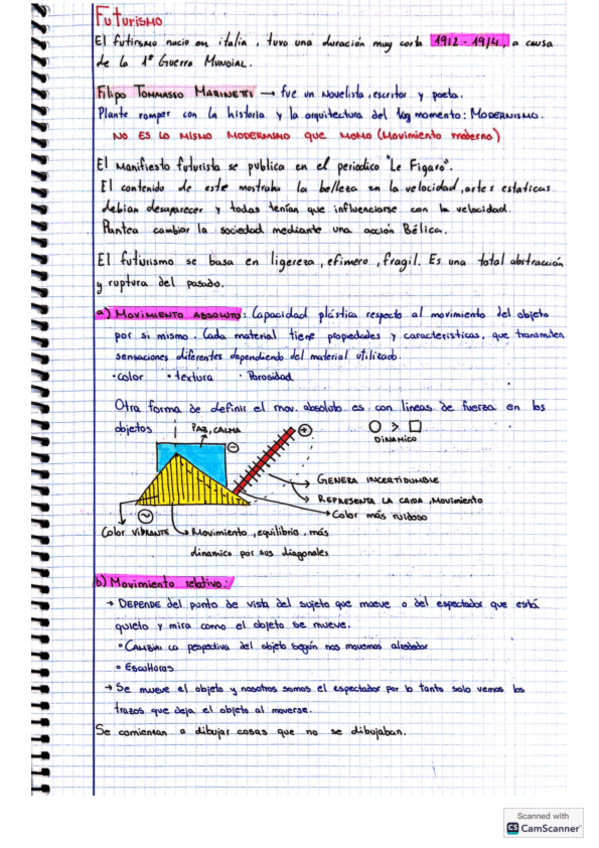 Futurismo
El futirsmo nacio en italia, tuvo una duración muy corta 1912-1914, a causa
de la 1ª Guerra Mundial.
Filipo Tommasso Marinetti → fue un Novelista, escritor y poeta.
Plante romper con la historia y la arquitectura del momento: Modernismo.
NO ES LO MISMO MODERNISMO QUE MOMO (Movimiento moderno)
El Manifiesto futurista se publica en el periodico "Le Figaro".
El contenido de este mostraba la belleza en la velocidad, artes estaticas
debian desaparecer y todas tenían que influenciarse con la velocidad.
Plantea cambiar la sociedad mediante una acción Bélica.
El futurismo se basa en ligereza, efimero, fragil. Es una total abstracción
y ruptura del pasado.
a) Movimiento absoluto: Capacidad plástica respecto al movimiento del objeto
por si mismo. Cada material tiene propiedades y caracteristicas, que transmiten
sensaciones diferentes dependiendo del material utilizado.
·color · textura · Porosidad
Otra forma de definir el mov. absoluto es con lineas de fuerza en los
objetos
PAZ, CALMA
DINAMICO
GENERA INCERTIDUMBLE
REPRESENTA LA CAIDA, Movimiento
Color más ruidoso
Color VIBRANTE
Movimiento, equilibrio, más
dinamico por sus diagonales
b) Movimiento relativo:
→ DEPENDE del punto de vista del sujeto que mueve o del espectador que está
quieto y mira como el objeto se mueve.
• Cambiar la perspectiva del objeto según nos movemos alrededor
• Esculturas
→ Se mueve el objeto y nosotros somos el espectador por lo tanto solo vemos los
trazos que deja el objeto al moverse.
Se comienzan a dibujar cosas que no se dibujaban.
Scanned with
CS CamScanner